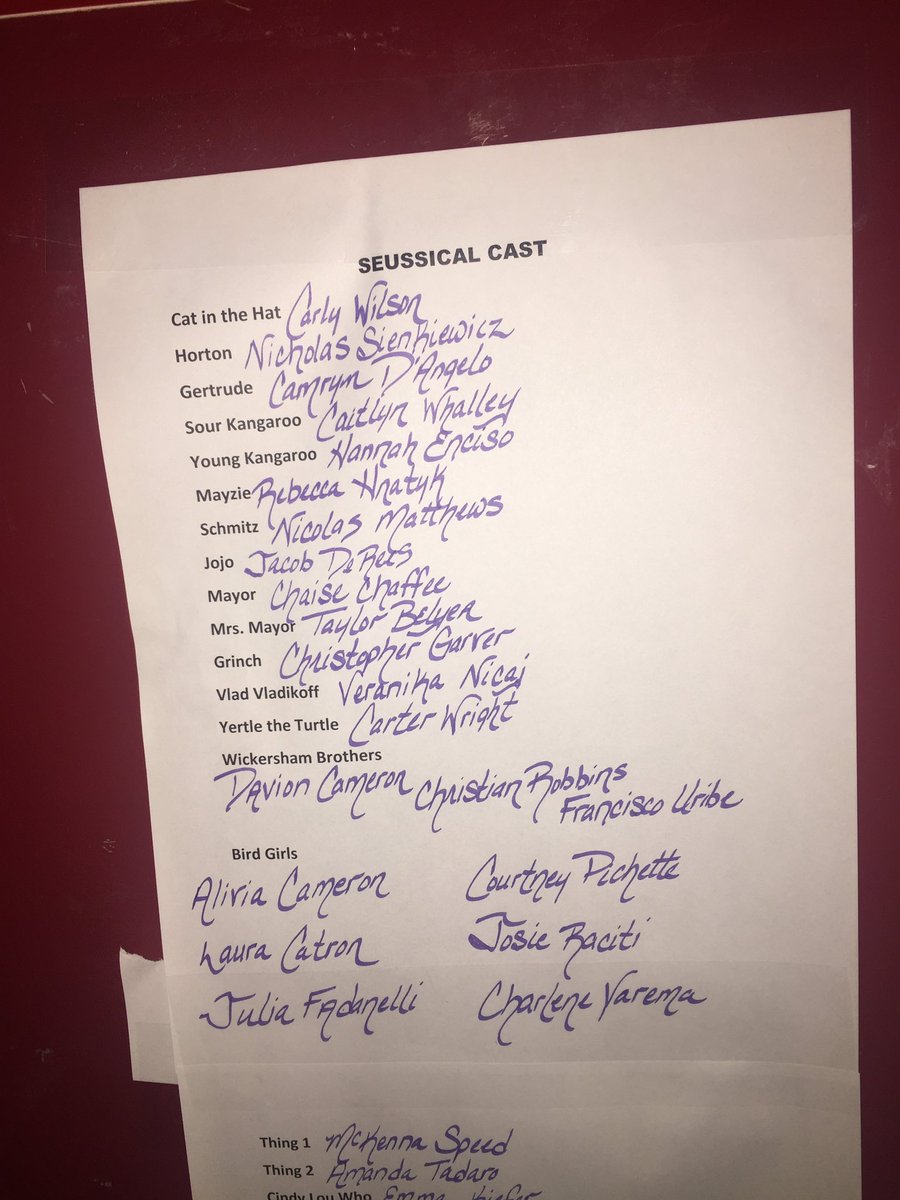 SEUSSICAL CAST
Cat in the Hat Carly Wilson
Horton Nicholas Sienkiewicz
Gertrude Camryn D'Angelo
Sour Kangaroo Caitlyn Whalley
Young Kangaroo Hannah Enciso
Mayzie Rebecca Hnatyk
Schmitz Nicolas Matthews
Jojo Jacob DeRees
Mayor Chaise Chaffee
Mrs. Mayor Taylor Belyer
Grinch Christopher Garver
Vlad Vladikoff Veranika Nicaj
Yertle the Turtle Carter Wright
Wickersham Brothers
Davion Cameron Christian Robbins
Francisco Uribe
Bird Girls
Alivia Cameron Courtney Pichette
Laura Catron Josie Raciti
Julia Fadanelli Charlene Yarema
Thing 1 McKenna Speed
Thing 2 Amanda Tadaro
Cindy Lou Who Emma Kiefer